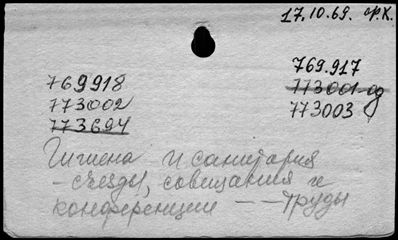 17.10.69. Ф.К.
769918
773002
773694
769.917
773001-од
773003
Гигиена и санитария
- съезды, совещания и
конференции -- Труды